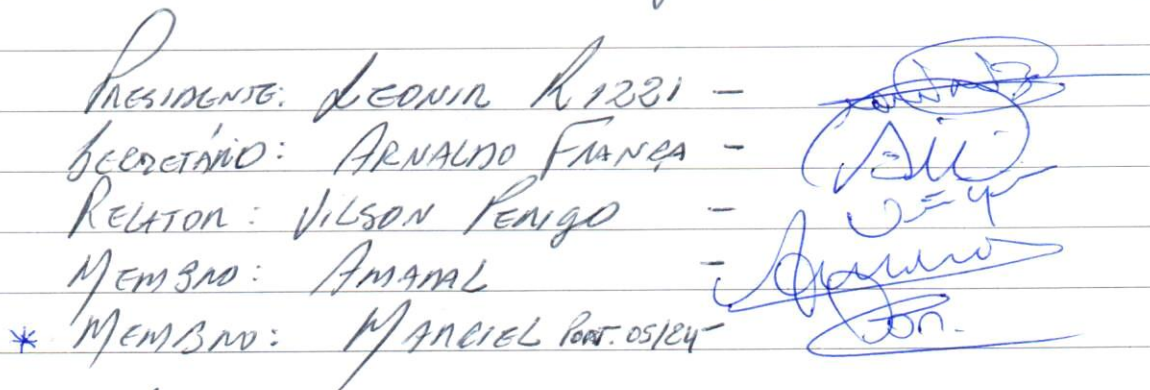 PRESIDENTE: LEONIR RIZZI -
SECRETÁRIO: ARNALDO FRANÇA -
RELATOR: VILSON PERIGO -
MEMBRO: AMARAL -
* MEMBRO: MARCIEL PORT. 05/24 -